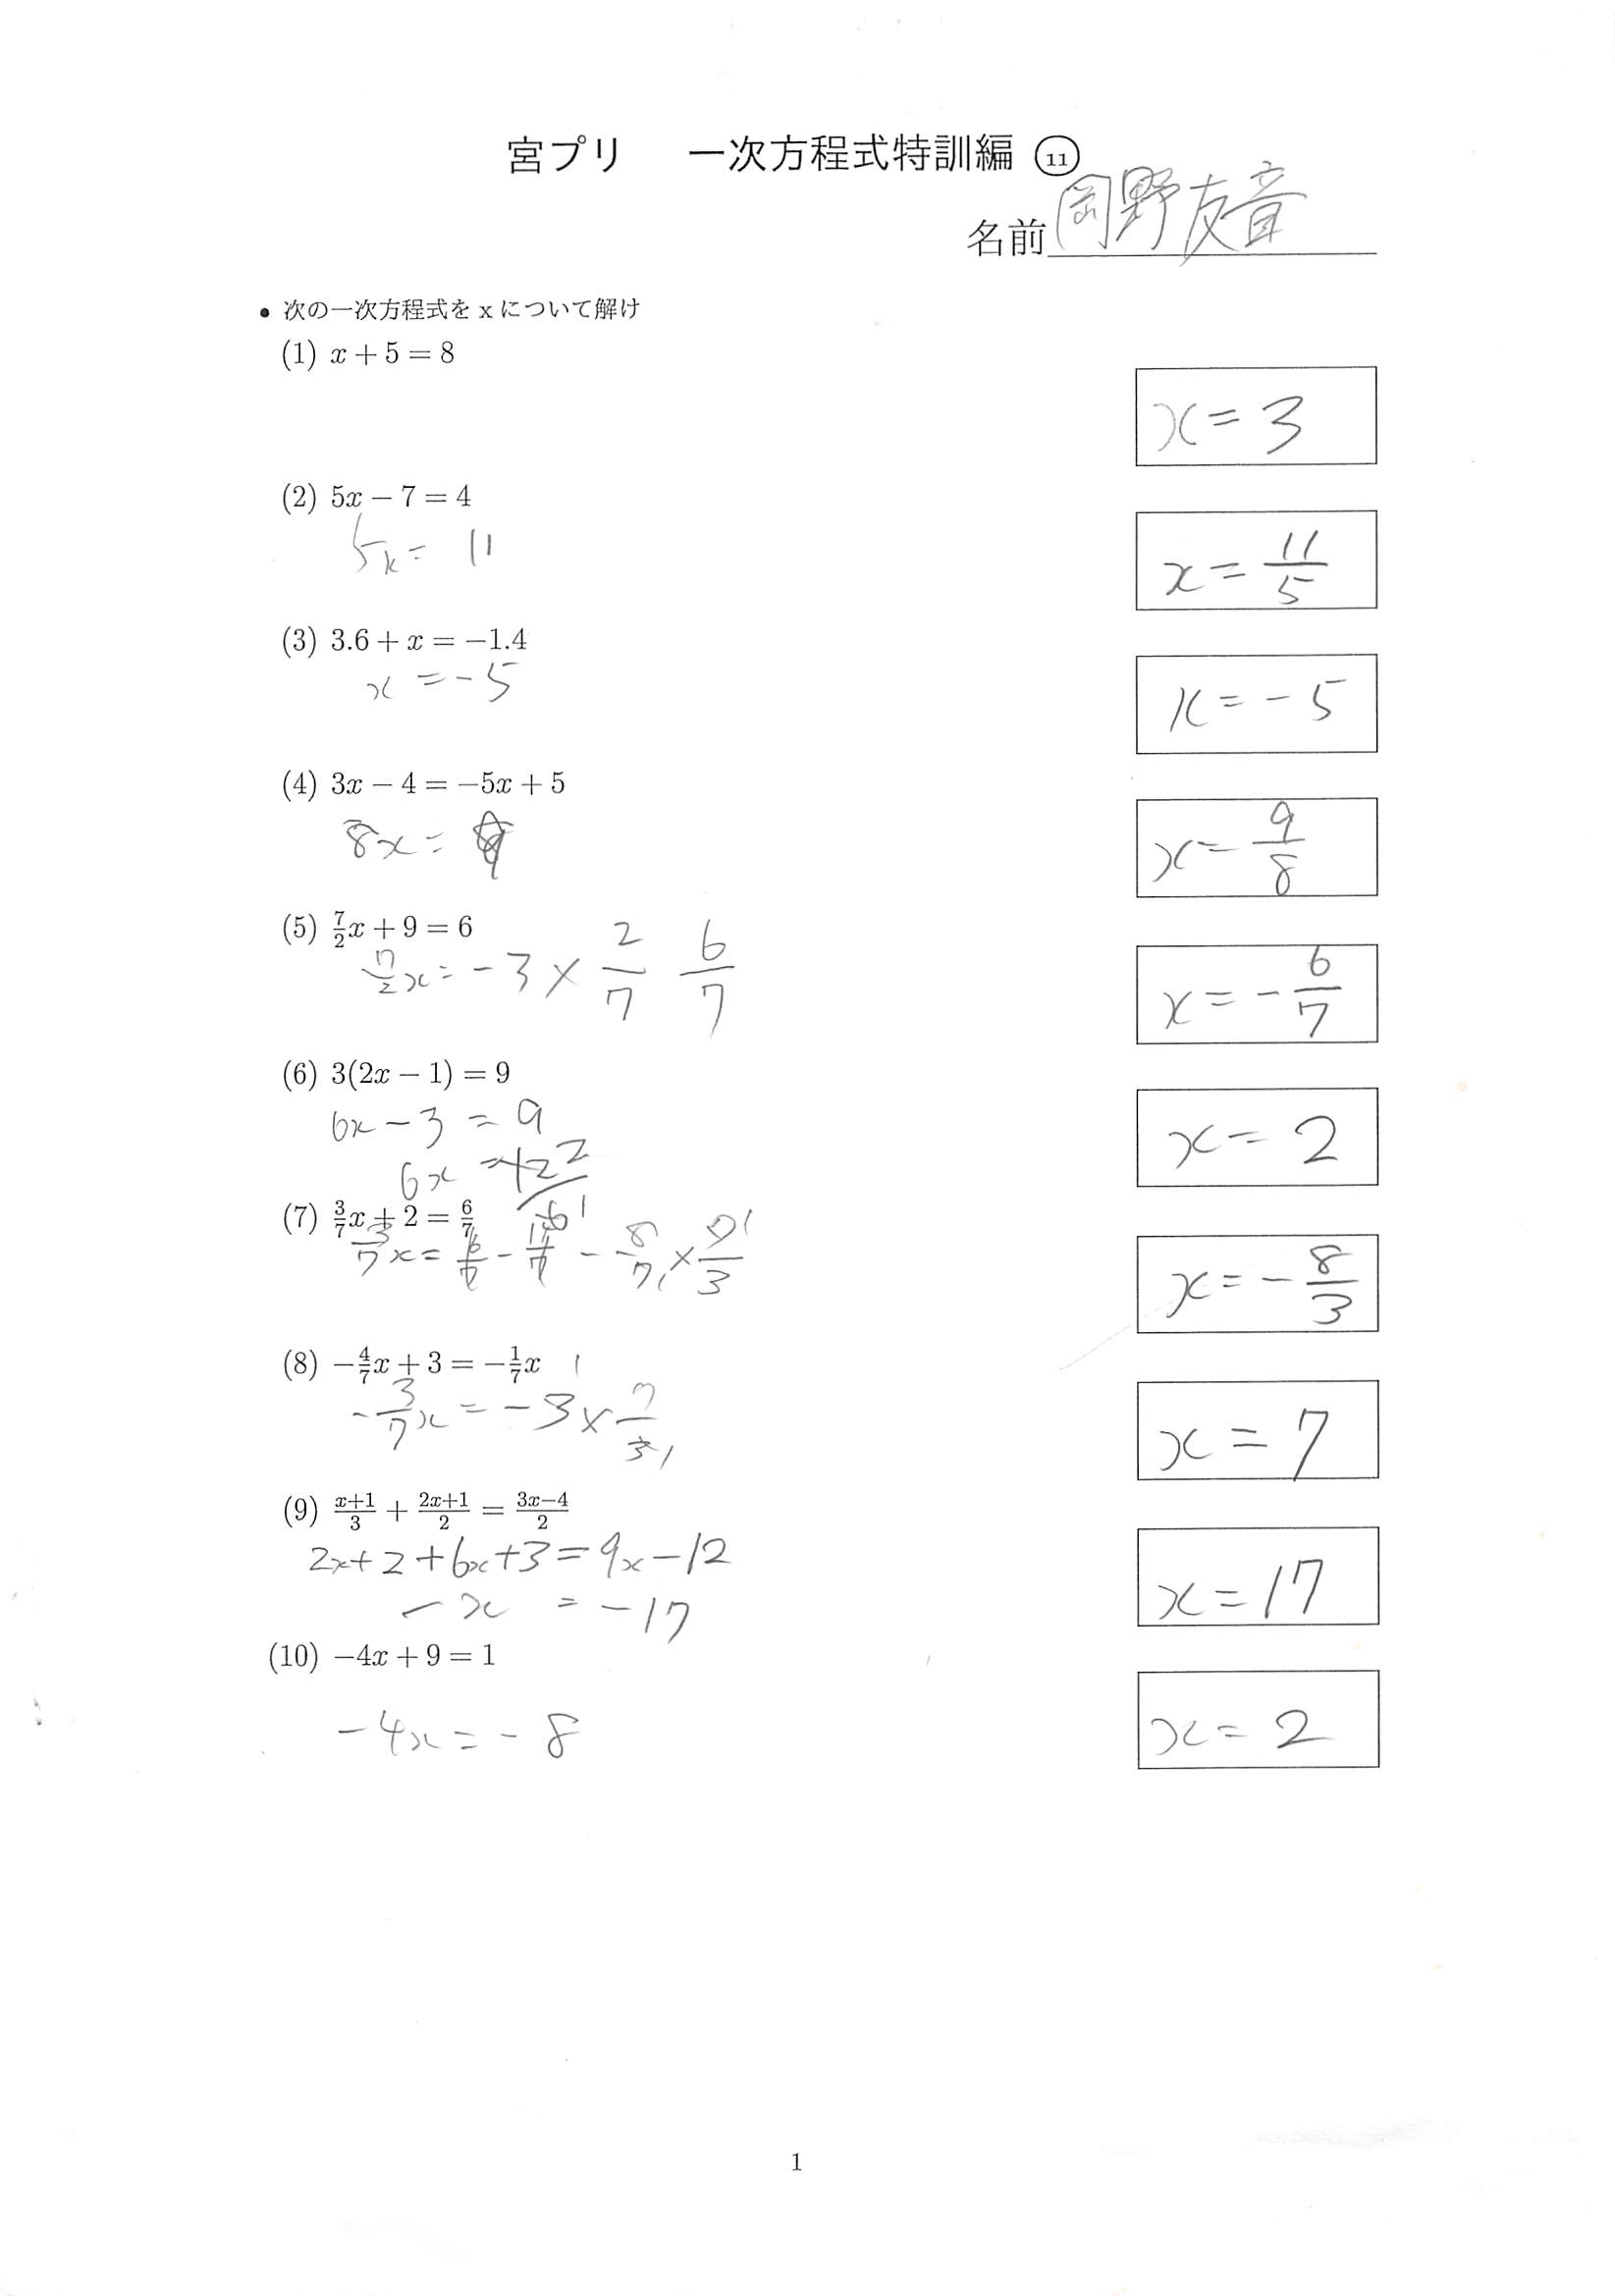 宮プリ 一次方程式特訓編 ⑪
名前 岡野友音
• 次の一次方程式をxについて解け
(1) x + 5 = 8
x = 3
(2) 5x − 7 = 4
5x = 11
x = 11/5
(3) 3.6 + x = −1.4
x = −5
x = −5
(4) 3x − 4 = −5x + 5
8x = 9
x = 9/8
(5) 7/2 x + 9 = 6
7/2 x = −3 × 2/7 6/7
x = − 6/7
(6) 3(2x − 1) = 9
6x − 3 = 9
6x = 12 2
6 1
x = 2
(7) 3/7 x + 2 = 6/7
3/7 x = 6/7 − 14/7 − 8/7 1 × 7 1/3
x = − 8/3
(8) − 4/7 x + 3 = − 1/7 x
1
− 3/7 x = −3 × 7/3 1
x = 7
(9) x+1/3 + 2x+1/2 = 3x−4/2
2x + 2 + 6x + 3 = 9x − 12
− x = − 17
x = 17
(10) −4x + 9 = 1
−4x = − 8
x = 2
1